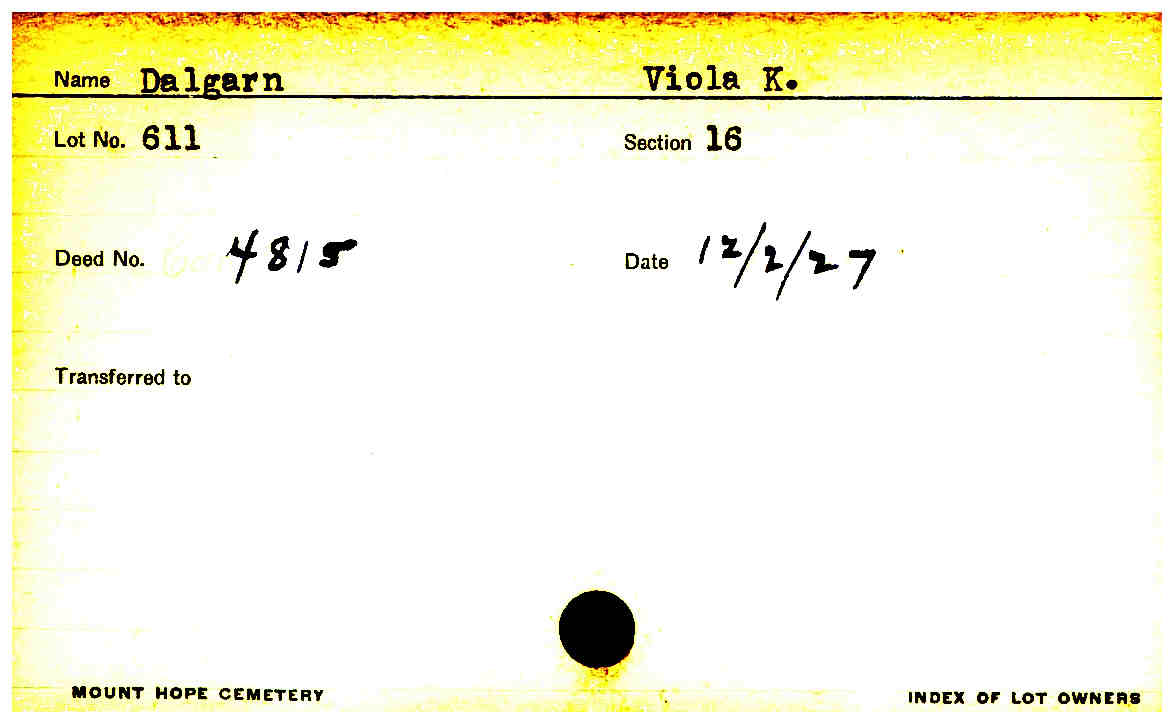 Name Dalgarn Viola K.
Lot No. 611 Section 16
Deed No. 4815 Date 12/2/27
Transferred to
MOUNT HOPE CEMETERY INDEX OF LOT OWNERS